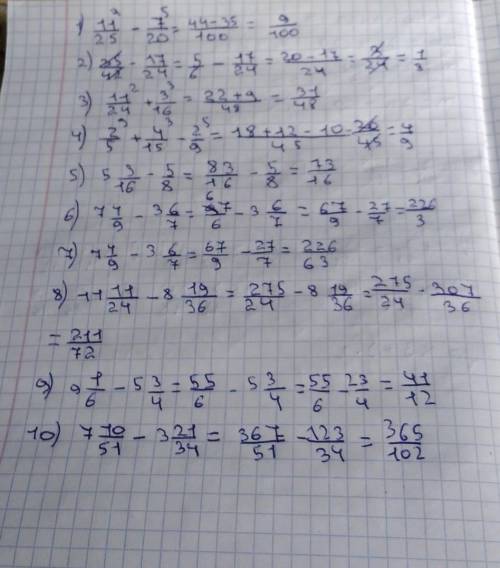 1) 11/25 - 7/20 = 44-35/100 = 9/100
2) 25/42 - 17/24 = 5/6 - 17/24 = 20-17/24 = 3/24 = 1/8
3) 11/24 + 3/16 = 22+9/48 = 31/48
4) 2/5 + 4/15 - 2/9 = 18+12-10/45 = 20/45 = 4/9
5) 5 3/16 - 5/8 = 83/16 - 5/8 = 73/16
6) 7 4/9 - 3 6/7 = 67/6 - 3 6/7 = 67/9 - 27/7 = 226/3
7) 7 4/9 - 3 6/7 = 67/9 - 27/7 = 226/63
8) 11 11/24 - 8 19/36 = 275/24 - 8 19/36 = 275/24 - 307/36
= 211/72
9) 9 1/6 - 5 3/4 = 55/6 - 5 3/4 = 55/6 - 23/4 = 41/12
10) 7 10/51 - 3 21/34 = 367/51 - 123/34 = 365/102